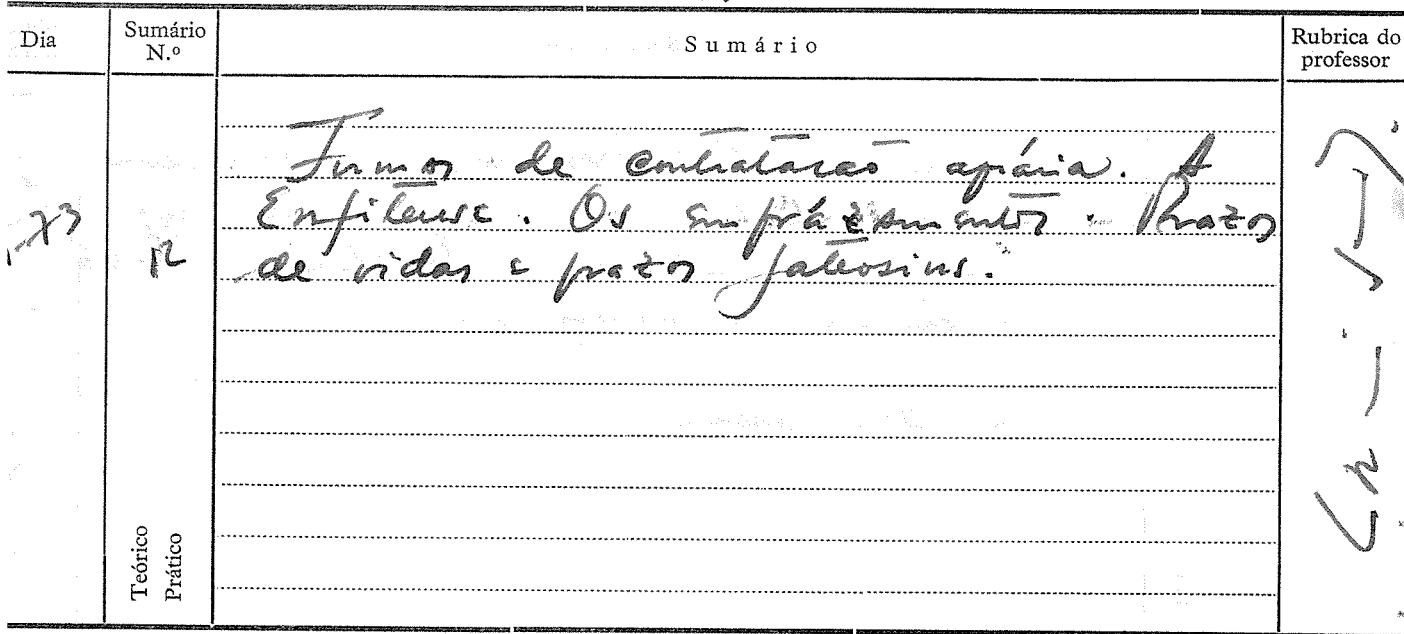 Dia
Sumário
N.º
Sumário
Rubrica do
professor
Formas de contratacao agrária. A
Enfiteuse. Os emprázamentos. Prazos
de vidas e prazos fateosins.
Teórico
Prático